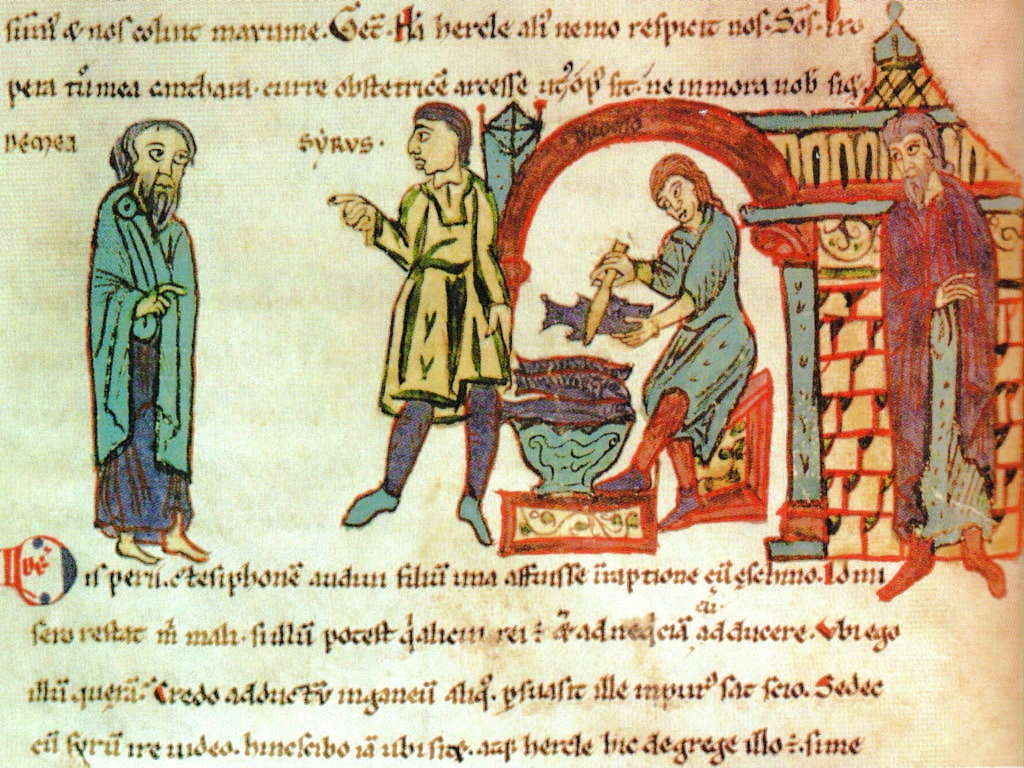 sumꝰ & nos colunt maxume. Get̄. Ha hercle aliꝰ nemo respicit nos. Sos̄. Pro
pera tu mea canthara. curre obstetricē arcesse ut opꝰ sit. ne in mora nob siet.
DEMEA
SYRUS.
Dis perii. ctesiphonē audiui filiū una affuisse in raptione cū eschino. Id mi
sero restat m̄ mali. si illū potest qui alicui rei ē
cū
&iā ad neq̄ciā adducere. Vbi ego
illū querā. Credo adductū in ganeū aliq̄. psuasit ille impurꝰ sat scio. Sed ec
cū syrū ire uideo. hinc scibo iā ubi siet. atq̄ hercle hic de grege illo ē. si me